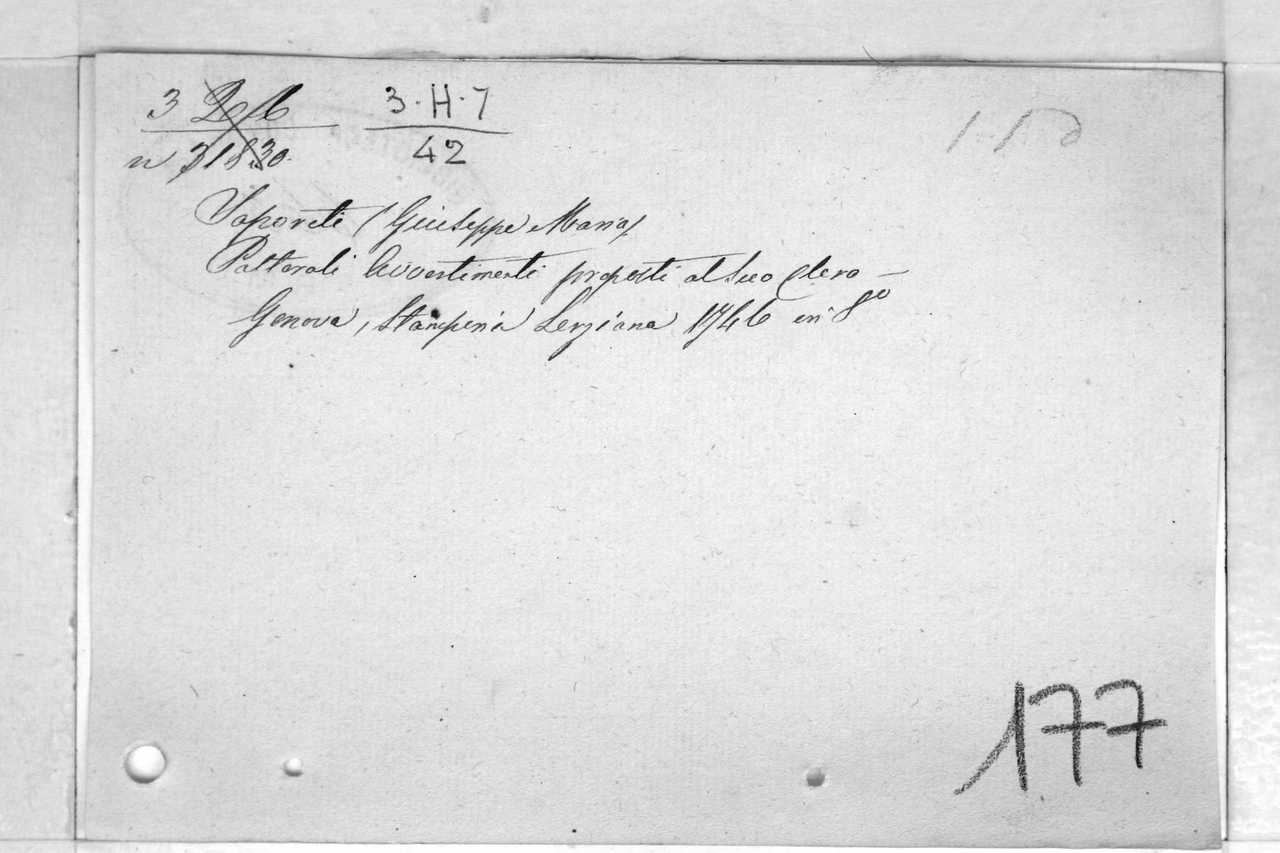 3 3·H·7
n 31830 42
Saporiti (Giuseppe Maria)
Pastorali Avvertimenti proposti al suo Clero —
Genova, Stamperia Lerziana 1746 in 8º
177